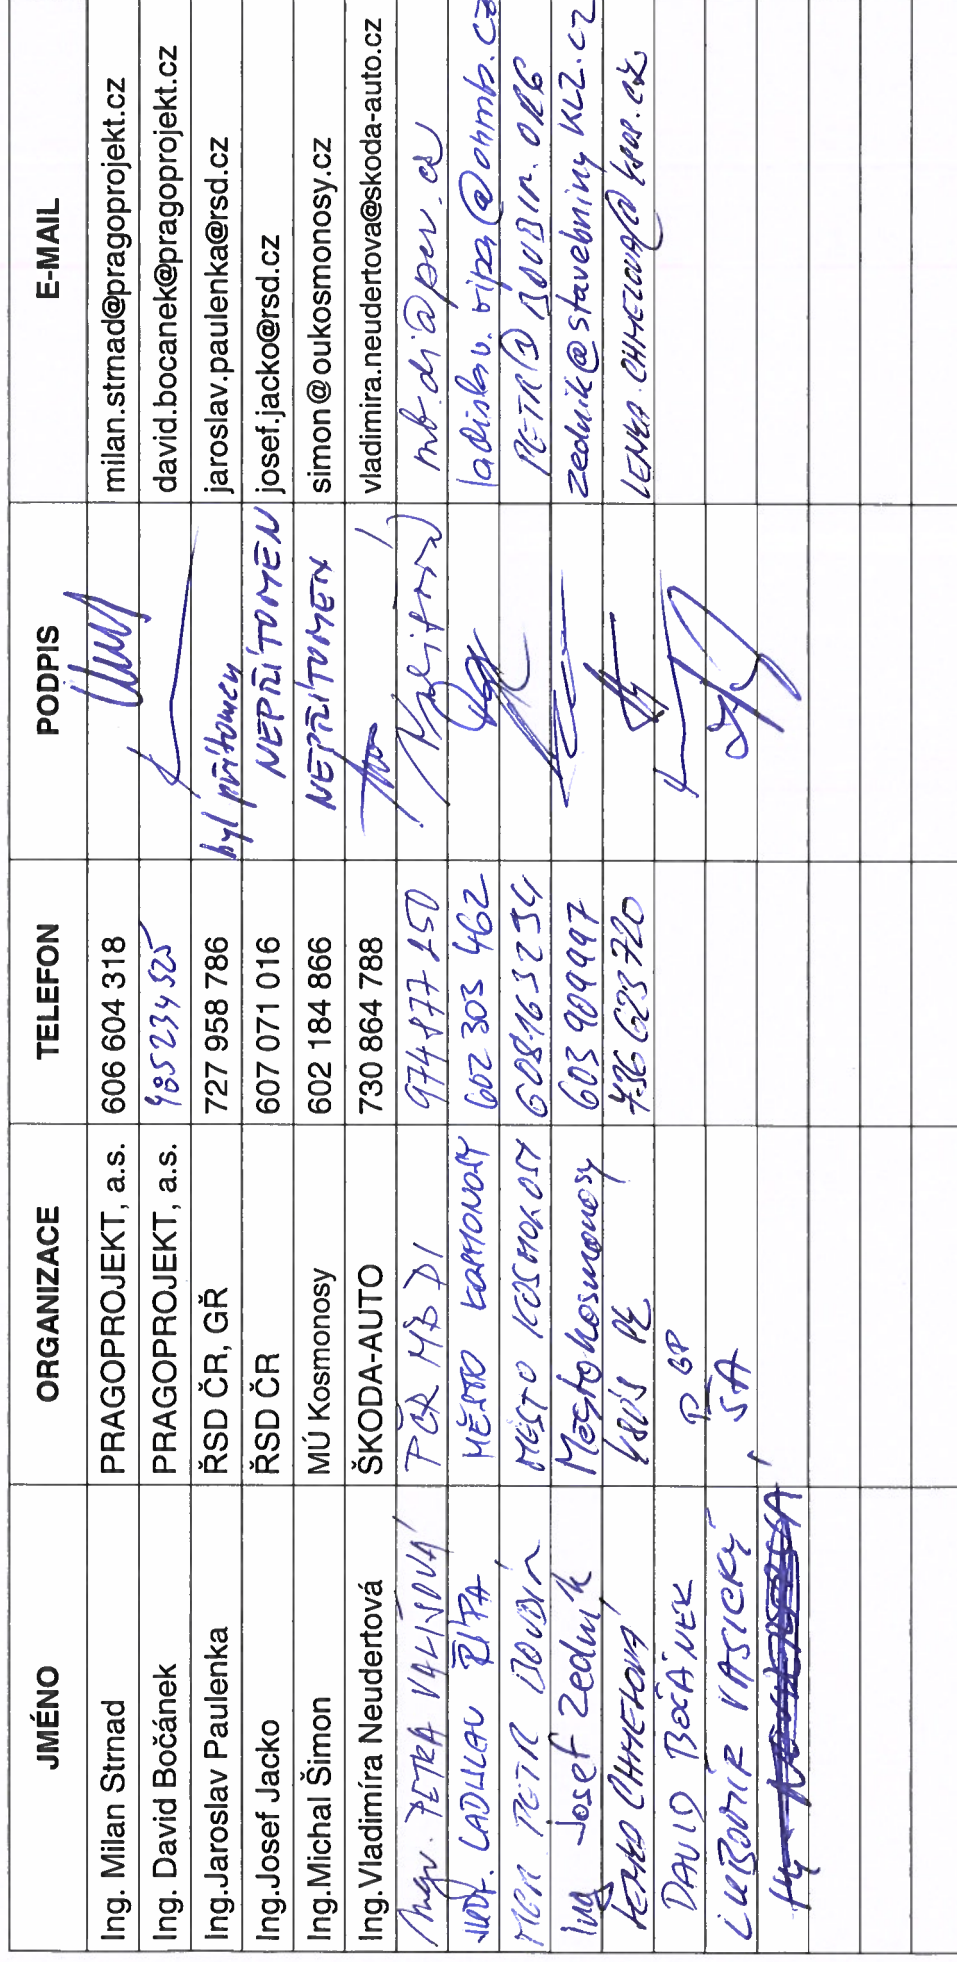 JMÉNO ORGANIZACE TELEFON PODPIS E-MAIL
Ing. Milan Strnad PRAGOPROJEKT, a.s. 606 604 318 milan.strnad@pragoprojekt.cz
Ing. David Bočánek PRAGOPROJEKT, a.s. david.bocanek@pragoprojekt.cz
Ing.Jaroslav Paulenka ŘSD ČR, GŘ 727 958 786 byl přítomen jaroslav.paulenka@rsd.cz
Ing.Josef Jacko ŘSD ČR 607 071 016 NEPŘÍTOMEN josef.jacko@rsd.cz
Ing.Michal Šimon MÚ Kosmonosy 602 184 866 NEPŘÍTOMEN simon@oukosmonosy.cz
Ing.Vladimíra Neudertová ŠKODA-AUTO 730 864 788 vladimira.neudertova@skoda-auto.cz
Mgr. PETRA VALIŠOVÁ PČR MB DI
LADISLAV ŘÍPA MĚSTO KOSMONOSY 602 303 462
MGR PETR BOUBÍN MĚSTO KOSMONOSY 608163234 PETR@BOUBIN.ORG
Ing Josef Zedník Město Kosmonosy 603 909997 zednik@stavebninyKLZ.cz
LENKA CHMELOVÁ 736 623720
DAVID BOČÁNEK
LUBOMÍR VASICKÝ ŠA